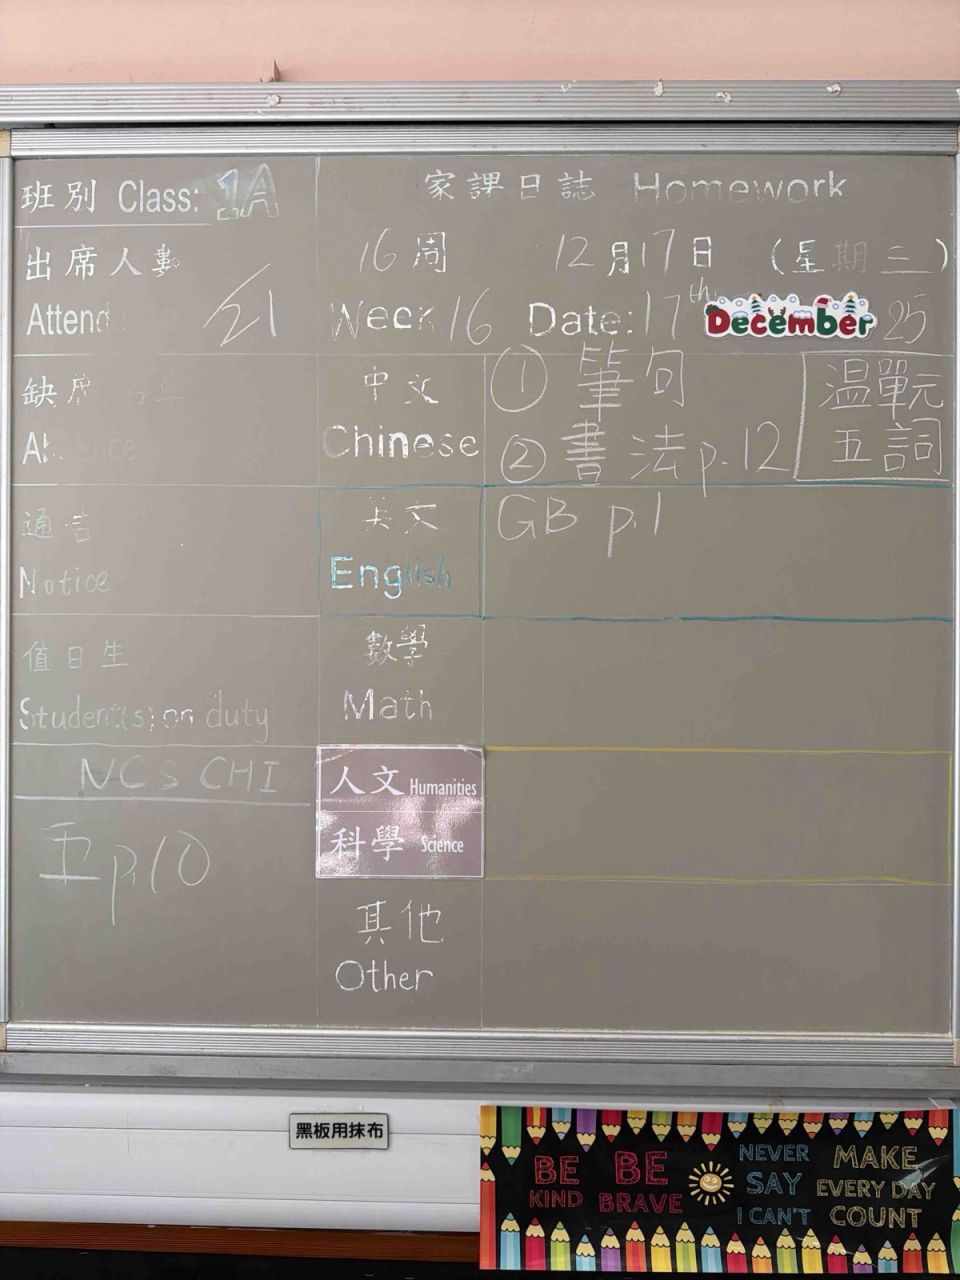 班別 Class: 1A
家課日誌 Homework
出席人數
Attend
21
16周 12月17日 (星期三)
Week 16 Date: 17th December 25
缺席
中文
Chinese
① 筆句
② 書法p.12
温單元
五詞
通告
Notice
英文
English
GB p.1
值日生
Student(s) on duty
數學
Math
NCS CHI
p.10
人文 Humanities
科學 Science
其他
Other
黑板用抹布
BE KIND
BE BRAVE
NEVER SAY I CAN'T
MAKE EVERY DAY COUNT